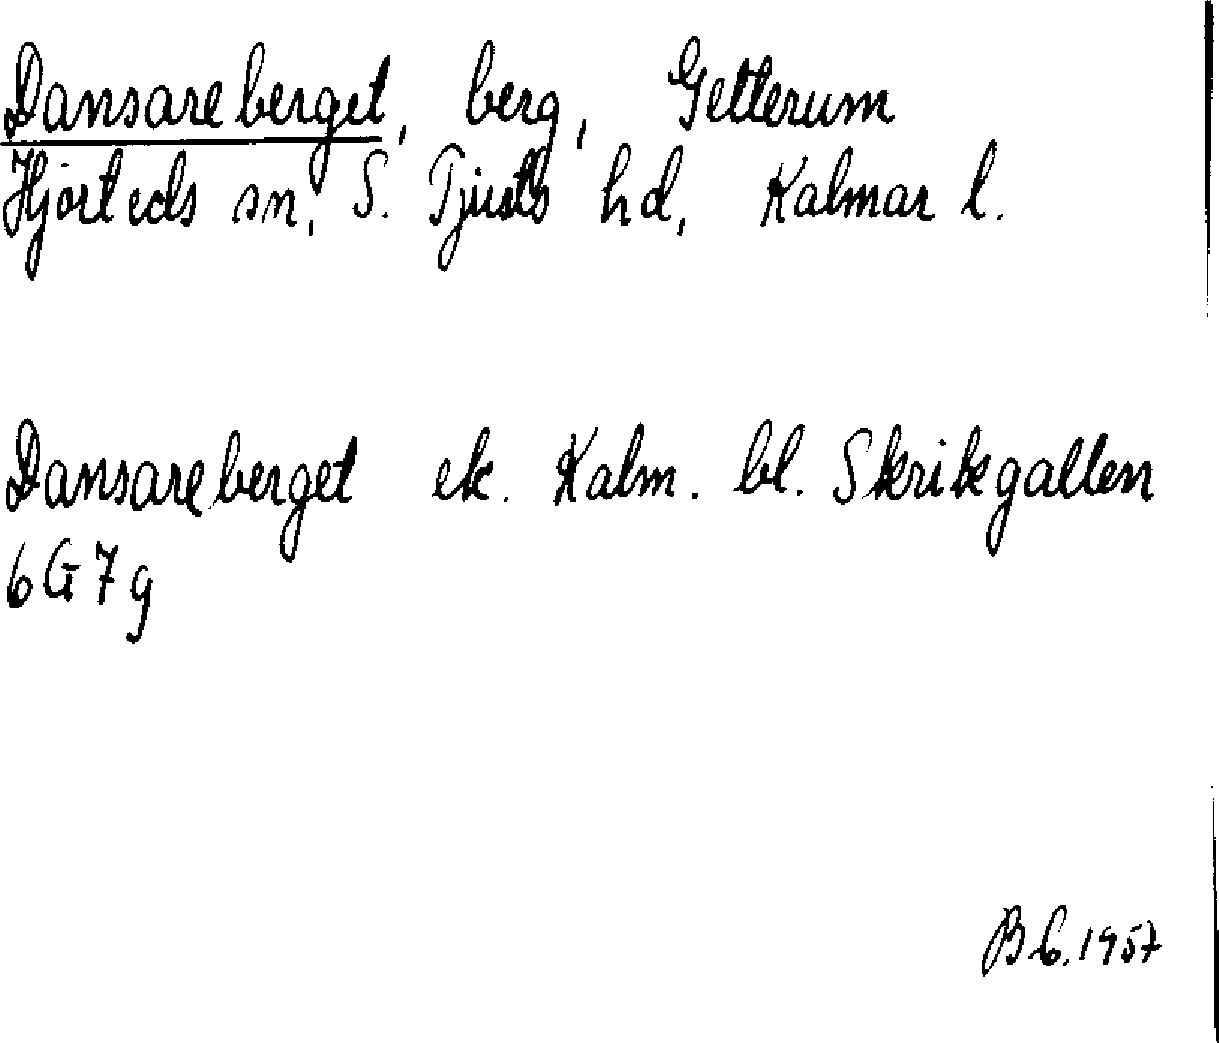 Dansareberget, berg, Getterum
Hjorteds sn, S. Tjusts hd, Kalmar l.
Dansareberget ek. Kalm. bl. Skrikgallen
6G7g
B.C. 1957